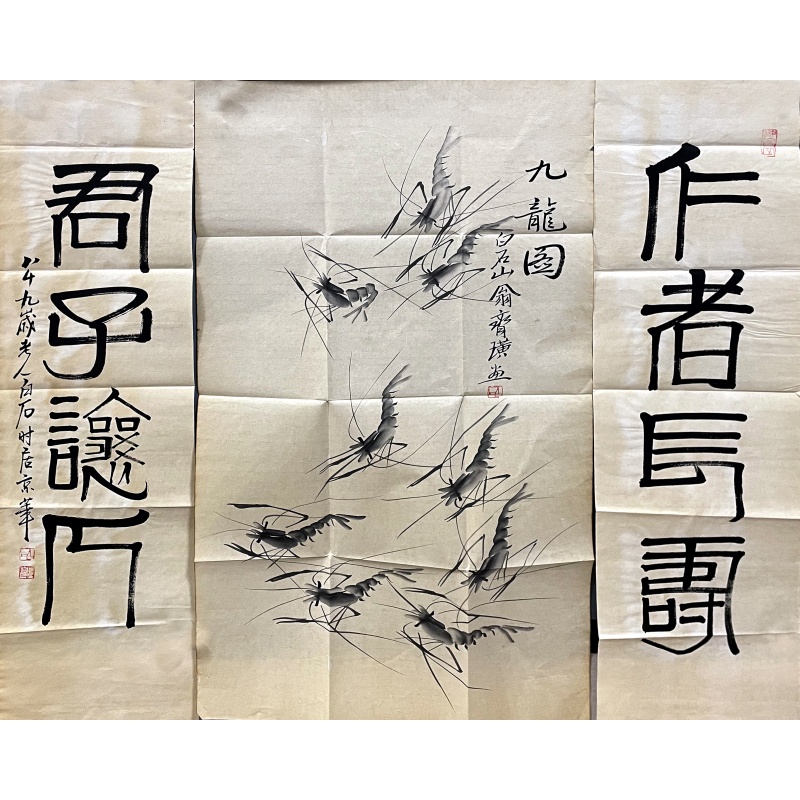 仁者長壽
九龍图
白石山翁齊璜画
君子
八十九歲老人白石时居京華